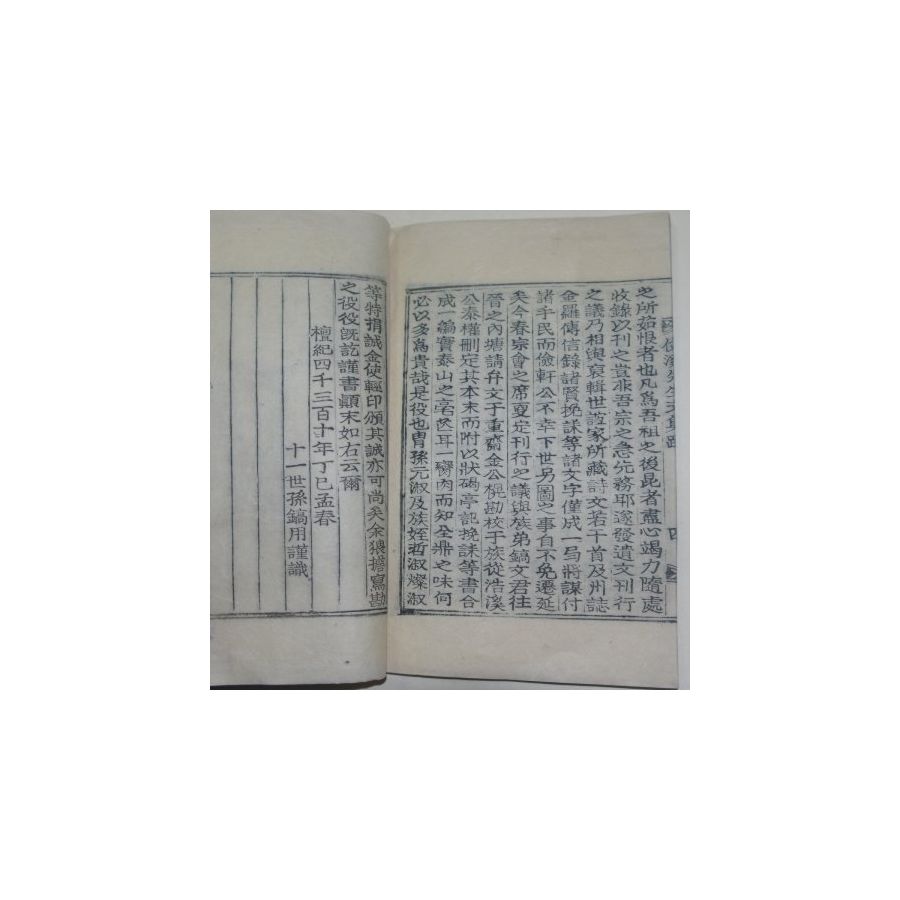 之所茹恨者也凡爲吾祖之後昆者盡心竭力隨處
收錄以刊之豈非吾宗之急先務耶遂發遺文刊行
之議乃相與裒輯世誼家所藏詩文若干首及州誌
金羅傳信錄諸賢挽誄等諸文字僅成一局將謀付
諸手民而儉軒公不幸下世另圖之事自不免遷延
矣今春宗會之席更定刊行之議與族弟鎬文君往
晉之內塘請弁文于重齋金公榥勘校于族從浩溪
公泰權刪定其本末而附以狀碣亭記挽誄等書合
成一編實泰山之毫芒耳一臠肉而知全鼎之味何
必以多爲貴哉是役也胄孫元淑及族姪哲淑燦淑
等特捐誠金使輕印頒其誠亦可尚矣余猥擔寫勘
之役役旣訖謹書顚末如右云爾
檀紀四千三百十年丁巳孟春
十一世孫鎬用謹識